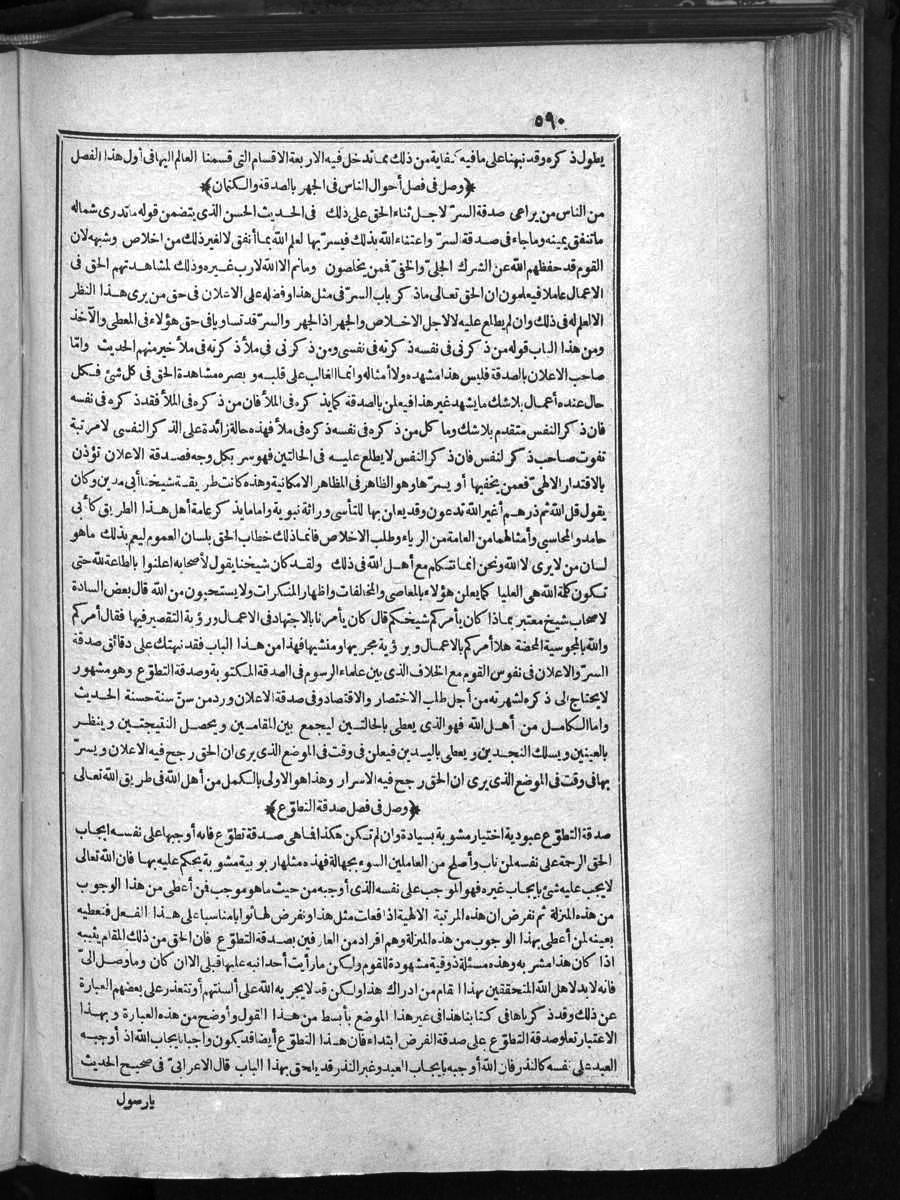 ٥٩٠
يطول ذكره وقد نبهنا على ما فيه كفاية من ذلك مما تدخل فيه الاربعة الاقسام التى قسمنا العالم اليها فى أول هذا الفصل
﴿وصل فى فصل أحوال الناس فى الجهر بالصدقة والكتمان﴾
من الناس من يراعى صدقة السرّ لاجل ثناء الحق على ذلك فى الحديث الحسن الذى يتضمن قوله ما تدرى شماله
ما تنفق يمينه وما جاء فى صدقة السرّ واعتناء الله بذلك فيسرّ بها لعلم الله بما أنفق لا لغير ذلك من اخلاص وشبهه لان
القوم قد حفظهم الله عن الشرك الجلىّ والخفىّ فمن يخلصون وما ثم الا الله لا رب غيره وذلك لمشاهدتهم الحق فى
الاعمال عاملا فيعلمون ان الحق تعالى ما ذكر باب السرّ فى مثل هذا وفضله على الاعلان فى حق من يرى هذا النظر
الا لعلم له فى ذلك وان لم يطلع عليه لا لاجل الاخلاص والجهر اذ الجهر والسرّ قد تساويا فى حق هؤلاء فى المعطى والآخذ
ومن هذا الباب قوله من ذكرنى فى نفسه ذكرته فى نفسى ومن ذكرنى فى ملأ ذكرته فى ملأ خير منهم الحديث وامّا
صاحب الاعلان بالصدقة فليس هذا مشهده ولا أمثاله وانما الغالب على قلبه وبصره مشاهدة الحق فى كل شئ فكل
حال عنده أعمال بلا شك ما يشهد غير هذا فيعلن بالصدقة كما يذكره فى الملأ فان من ذكره فى الملأ فقد ذكره فى نفسه
فان ذكر النفس متقدم بلا شك وما كل من ذكره فى نفسه ذكره فى ملأ فهذه حالة زائدة على الذكر النفسى لا مرتبة
تفوت صاحب ذكر النفس فان ذكر النفس لا يطلع عليه فى الحالتين فهو سر بكل وجه فصدقة الاعلان تؤذن
بالاقتدار الالهىّ فعمن يخفيها أو يسرّها وهو الظاهر فى المظاهر الامكانية وهذه كانت طريقة شيخنا أبى مدين وكان
يقول قل الله ثم ذرهم أغير الله تدعون وقد يعلن بها للتأسى وراثة نبوية واما ما يذكر عامة أهل هذا الطريق كأبى
حامد والمحاسبى وأمثالهما من العامة من الرياء وطلب الاخلاص فانما ذلك خطاب الحق بلسان العموم ليعم بذلك ما هو
لسان من لا يرى الا الله ونحن انما نتكلم مع أهل الله فى ذلك ولقد كان شيخنا يقول لأصحابه اعلنوا بالطاعة لله حتى
تكون كلمة الله هى العليا كما يعلن هؤلاء بالمعاصى والمخالفات واظهار المنكرات ولا يستحيون من الله قال بعض السادة
لاصحاب شيخ معتبر بماذا كان يأمركم شيخكم قال كان يأمرنا بالاجتهاد فى الاعمال ورؤية التقصير فيها فقال أمركم
والله بالمجوسية المحضة هلا أمركم بالاعمال وبرؤية مجريها ومنشيها فهذا من هذا الباب فقد نبهتك على دقائق صدقة
السرّ والاعلان فى نفوس القوم مع الخلاف الذى بين علماء الرسوم فى الصدقة المكتوبة وصدقة التطوّع وهو مشهور
لا يحتاج الى ذكره لشهرته من أجل طلب الاختصار والاقتصاد وفى صدقة الاعلان ورد من سنّ سنة حسنة الحديث
واما الكامل من أهل الله فهو الذى يعطى بالحالتين ليجمع بين المقامين ويحصل النتيجتين وينظر
بالعينين ويسلك النجدين ويعطى باليدين فيعلن فى وقت فى الموضع الذى يرى ان الحق رجح فيه الاعلان ويسرّ
بها فى وقت فى الموضع الذى يرى ان الحق رجح فيه الاسرار وهذا هو الاولى بالكمل من أهل الله فى طريق الله تعالى
﴿وصل فى فصل صدقة التطوّع﴾
صدقة التطوّع عبودية اختيار مشوبة بسيادة وان لم تكن هكذا فما هى صدقة تطوّع فانه أوجبها على نفسه ايجاب
الحق الرحمة على نفسه لمن تاب وأصلح من العاملين السوء بجهالة فهذه مثلها ربوبية مشوبة بحكم عليه بها فان الله تعالى
لا يجب عليه شئ بايجاب غيره فهو الموجب على نفسه الذى أوجبه من حيث ما هو موجب فمن أعطى من هذا الوجوب
من هذه المنزلة ثم نفرض ان هذه المرتبة الالهية اذا فعلت مثل هذا ونفرض لها ثوابا مناسبا على هذا الفعل فنعطيه
بعينه لمن أعطى بهذا الوجوب من هذه المنزلة وهم افراد من العارفين بصدقة التطوّع فان الحق من ذلك المقام يثيبه
اذا كان هذا مشربه وهذه مسئلة ذوقية مشهودة للقوم ولكن ما رأيت أحدا نبه عليها قبلى الا ان كان وما وصل الىّ
فانه لابد لاهل الله المتحققين بهذا المقام من ادراك هذا ولكن قد لا يجريه الله على ألسنتهم أو تتعذر على بعضهم العبارة
عن ذلك وقد ذكرناها فى كتابنا هذا فى غير هذا الموضع بأبسط من هذا القول وأوضح من هذه العبارة وبهذا
الاعتبار تعلو صدقة التطوّع على صدقة الفرض ابتداء فان هذا التطوّع أيضا قد يكون واجبا بايجاب الله اذ أوجبه
العبد على نفسه كالنذر فان الله أوجبه بايجاب العبد وغير النذر قد يلحق بهذا الباب قال الاعرابىّ فى صحيح الحديث
يا رسول